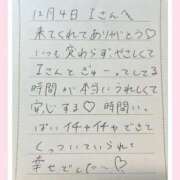 12月4日 Iさんへ
来てくれてありがとう♡
いつも変わらず、やさしくて
Iさんとぎゅーってしてる
時間が本当にうれしくて
安心する♡ 時間い
ぱいイチャイチャできて
くっついていられて
幸せでした〜♡